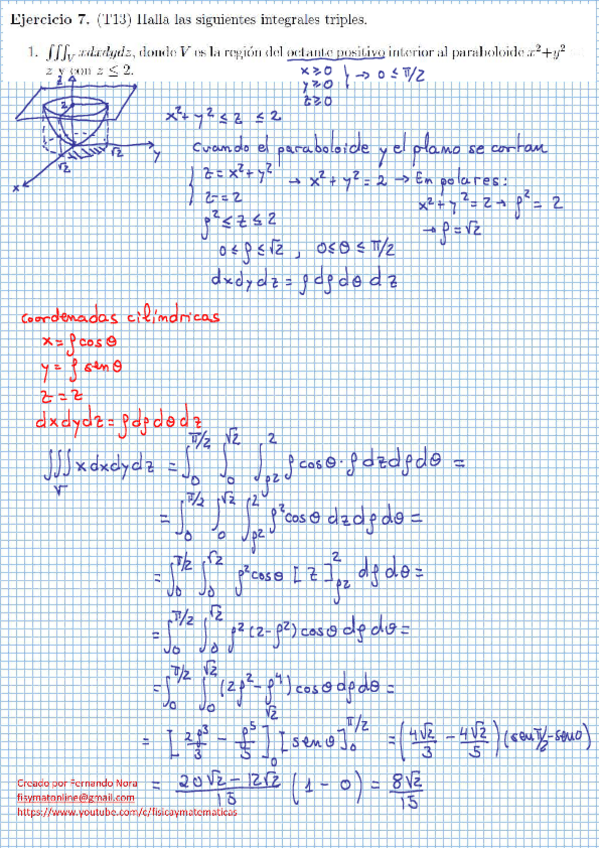 Ejercicio 7. (T13) Halla las siguientes integrales triples.
1. ∭_V xdxdydz, donde V es la región del octante positivo interior al paraboloide x²+y²
z y con z ≤ 2.
x≥0
y≥0 } → 0 ≤ π/2
z≥0
z
2
√2
√2
y
x
x²+y² ≤ z ≤ 2
Cuando el paraboloide y el plano se cortan
{ z = x²+y²
z = 2 → x²+y² = 2 → En polares:
x²+y² = 2 → ρ² = 2
→ ρ = √2
ρ² ≤ z ≤ 2
0 ≤ ρ ≤ √2 , 0 ≤ θ ≤ π/2
dxdydz = ρ dρ dθ dz
coordenadas cilíndricas
x = ρ cos θ
y = ρ sen θ
z = z
dxdydz = ρ dρ dθ dz
∭_V x dxdydz = ∫_0^{π/2} ∫_0^{√2} ∫_{ρ²}^2 ρ cos θ · ρ dz dρ dθ =
= ∫_0^{π/2} ∫_0^{√2} ∫_{ρ²}^2 ρ² cos θ dz dρ dθ =
= ∫_0^{π/2} ∫_0^{√2} ρ² cos θ [z]_{ρ²}^2 dρ dθ =
= ∫_0^{π/2} ∫_0^{√2} ρ² (2-ρ²) cos θ dρ dθ =
= ∫_0^{π/2} ∫_0^{√2} (2ρ² - ρ⁴) cos θ dρ dθ =
= [2ρ³/3 - ρ⁵/5]_0^{√2} [sen θ]_0^{π/2} = (4√2/3 - 4√2/5) (sen π/2 - sen 0)
= (20√2 - 12√2)/15 (1 - 0) = 8√2/15
Creado por Fernando Nora
fisymatonline@gmail.com
https://www.youtube.com/c/fisicaymatematicas